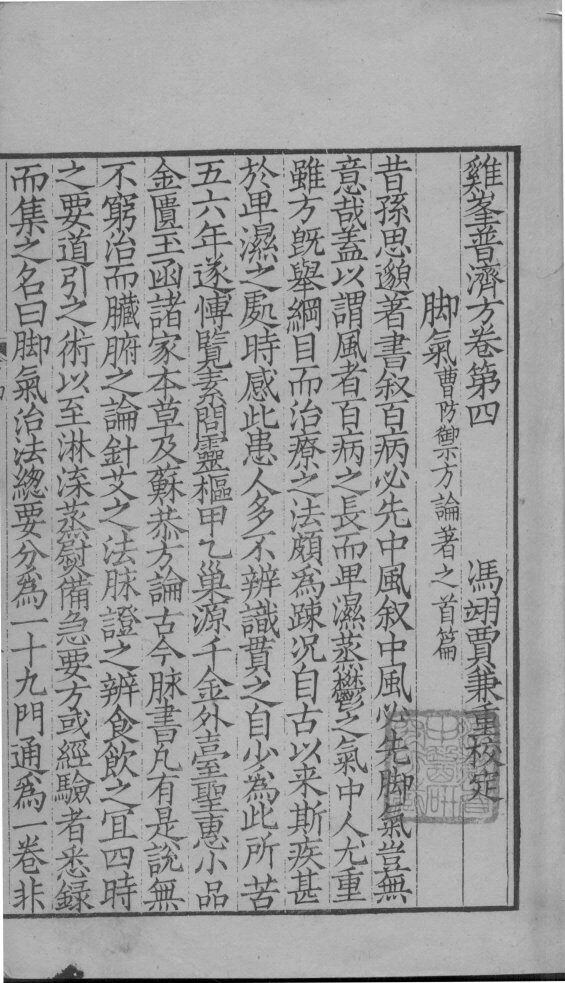 雞峯普濟方卷第四　馮翊賈兼重校定
脚氣曹防禦方論著之首篇
昔孫思邈著書叙百病必先中風叙中風必先脚氣豈無
意哉盖以謂風者百病之長而卑濕蒸鬱之氣中人尤重
雖方旣舉綱目而治療之法頗爲踈况自古以来斯疾甚
於卑濕之處時感此患人多不辨識賁之自少為此所苦
五六年遂愽覧素問靈樞甲乙巢源千金外臺聖惠小品
金匱玉函諸家本草及蘇恭方論古今脉書凡有是說無
不窮治而臟腑之論針艾之法脉證之辨食飲之宜四時
之要道引之術以至淋渫蒸熨備急要方或經驗者悉録
而集之名曰脚氣治法總要分為一十九門通為一卷非